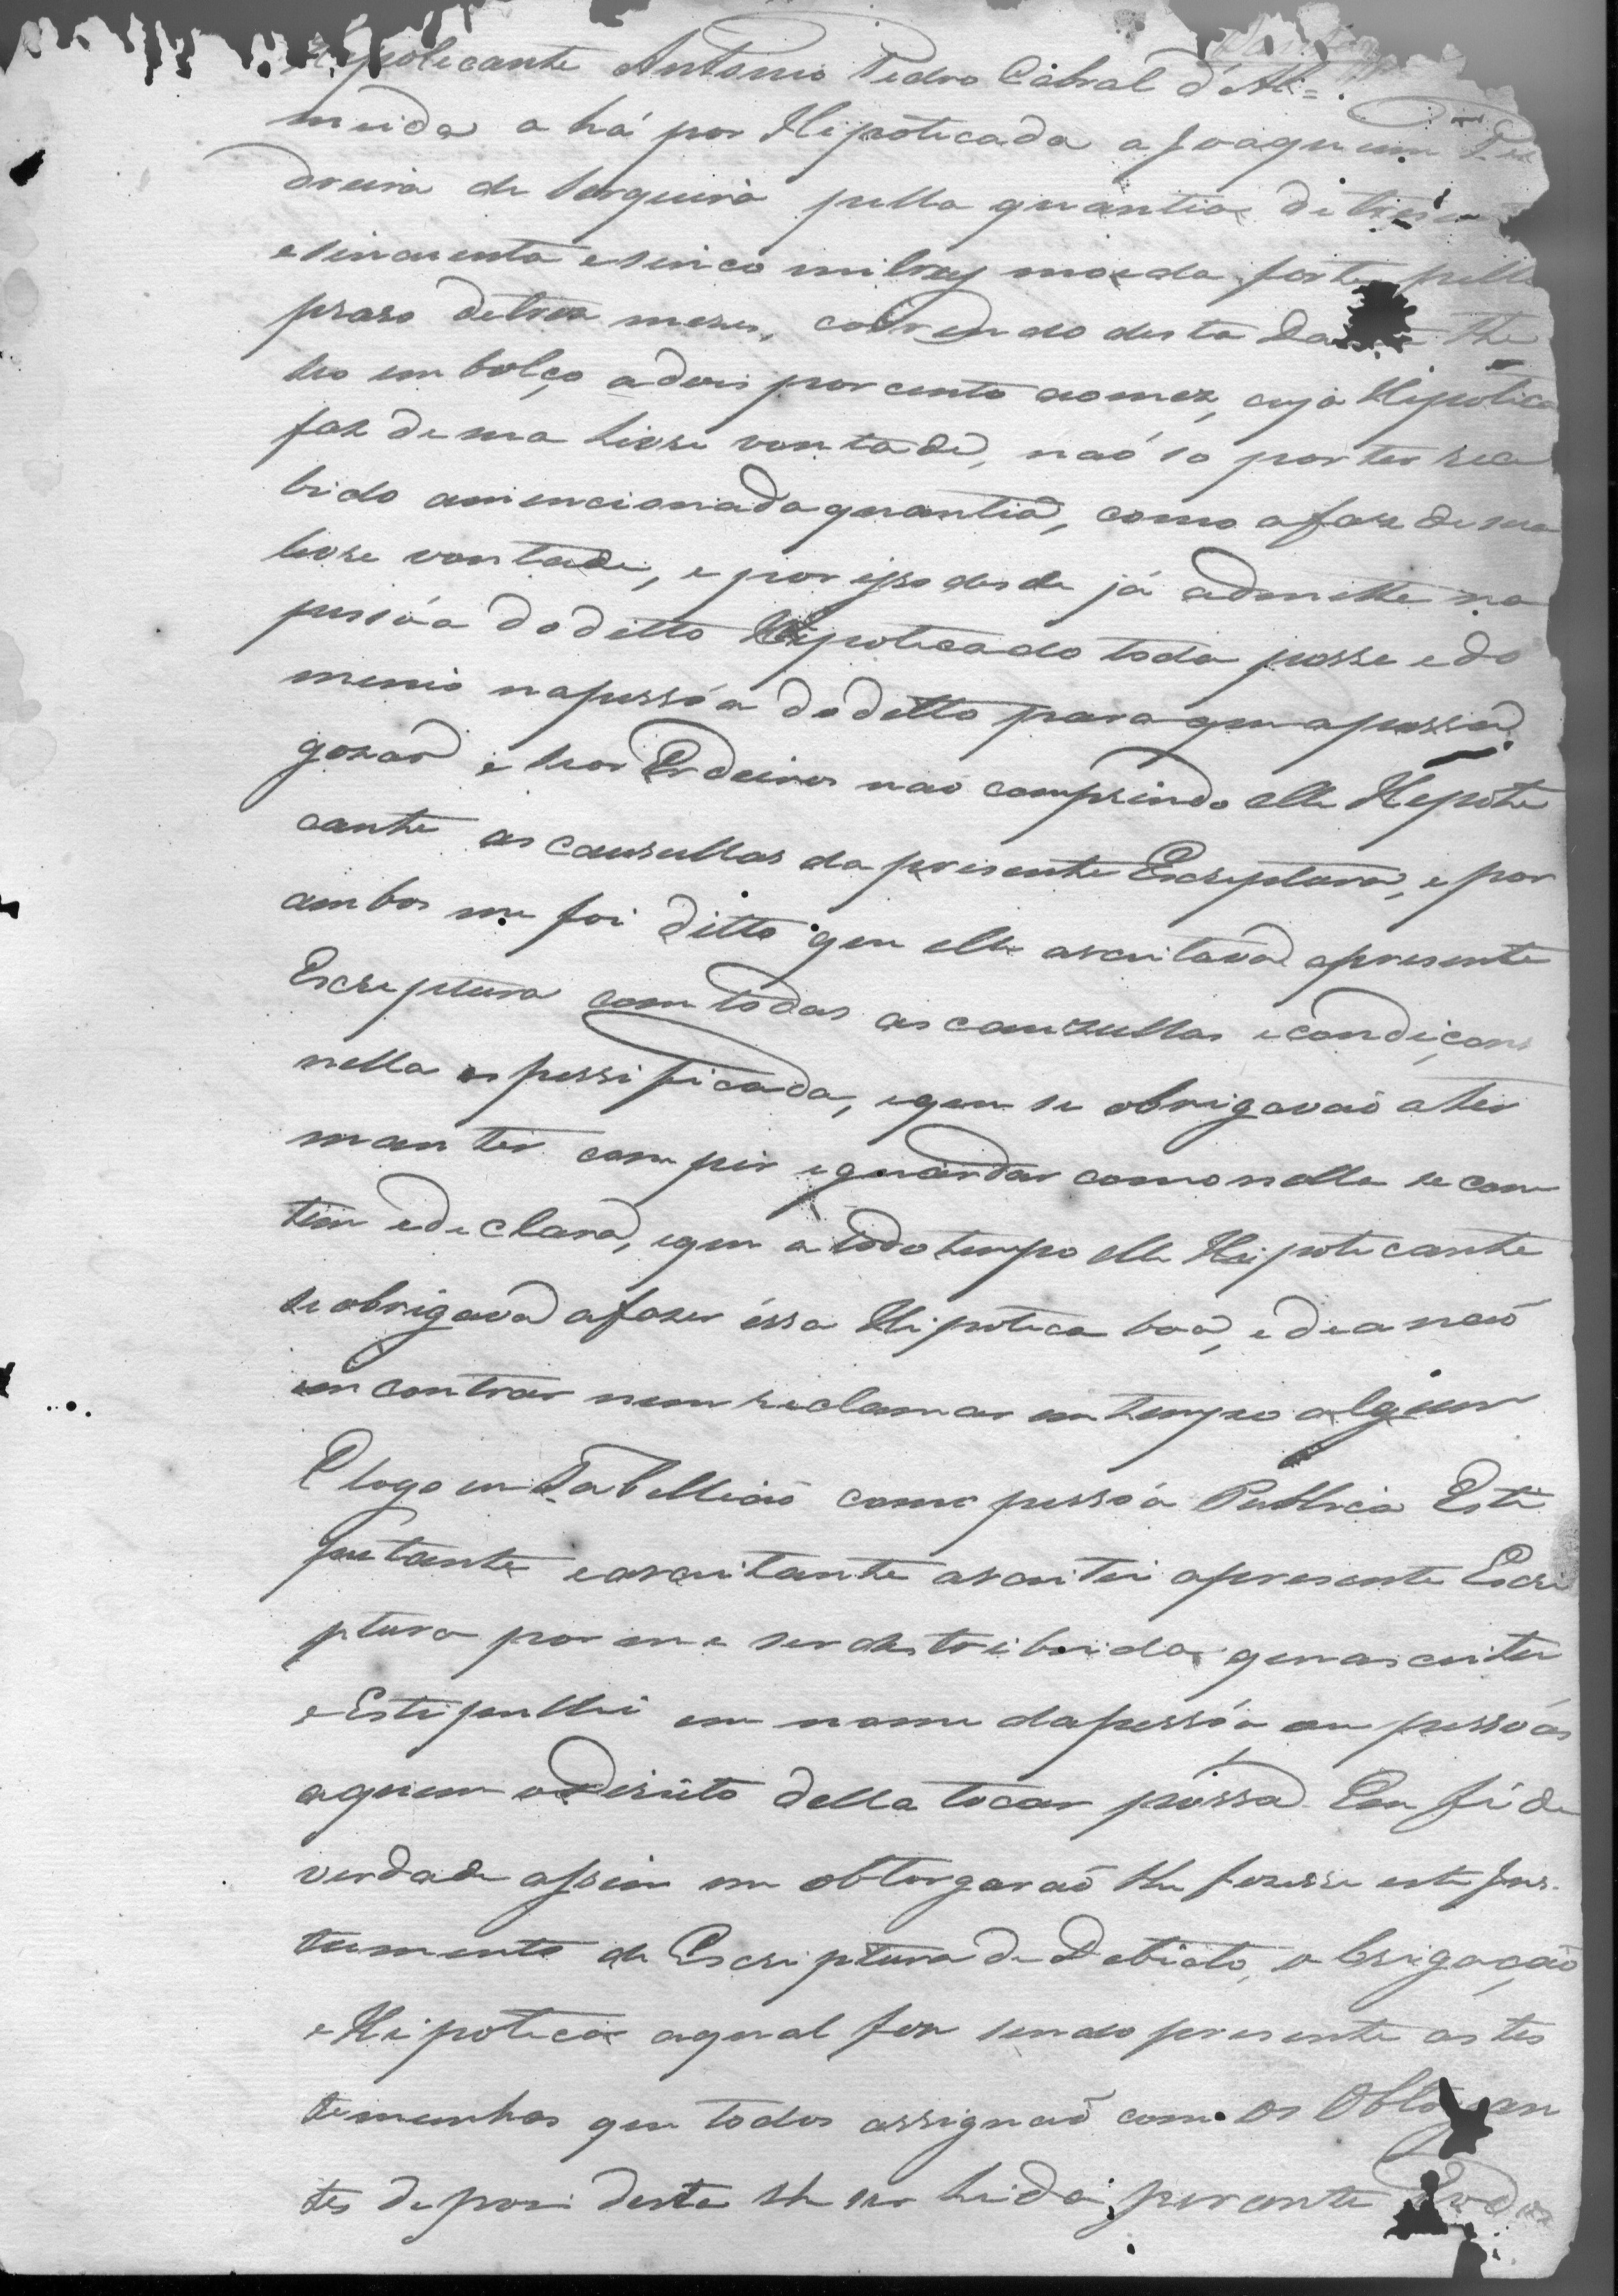 Hypotecante Antonio Pedro Cabral d'Al=
meida a há por Hipotecada a Joaquim Pe
dreira de Serqueira pella quantia de tresen
esincoenta esinco milrey moeda forte pello
praso detres mezes, correndo desta Da The
seo embolço adois por cento aomez, cuja Hipoteca
faz de sua livre vontade, naõ so por ter rece
bido amencionada quantia, como afaz de sua
livre vontade, e por isso desde já admette na
pessôa do ditto Hipotecado toda posse edo
menio napessôa do ditto para que apossa
gozar e seos Erdeiros naõ comprindo elle Hepote
cante as causullas da presente Escreptura, e por
ambos me foi ditto que elle asceitava apresente
Escreptura com todas as causullas econdiçoens
nella espessificada, eque se obrigavaõ ater
manter compir eguardar como nella se con
tem edeclara, eque a todo tempo elle Hipotecante
se obrigava afazer éssa Hipoteca boa, e de a naõ
encontrar nem reclamar em tempo algum
E logo eu Tabelliaõ como pessôa Publica Esti
pulante easceitante asceitei apresente Escri
ptura por me ser destribuida, que asceitei
e Estipullei em nome dapessôa ou pessôas
aquem odireito della tocar póssa. Em fé de
verdade assim me obtorgaraõ lhe fizesse este Ins-
tumento de Escriptura de Debicto, obrigaçaõ
e Hipoteca aqual foi sendo presente as tes
temunhas que todos assignaõ com os Obto an
tes depois deste lhe ser lida perante